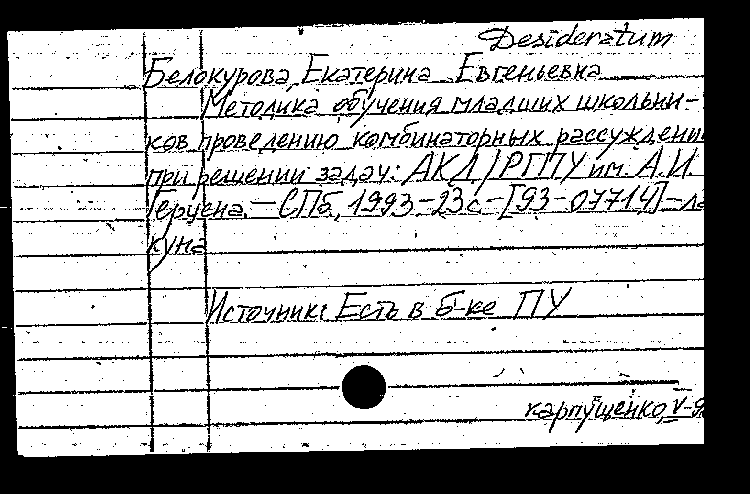 Desideratum
Белокурова, Екатерина Евгеньевна
Методика обучения младших школьни-
ков проведению комбинаторных рассуждени
при решении задач: АКД / РГПУ им. А.И.
Герцена. – СПб, 1993 – 23с – [93-07714] – ла
куна
Источник: Есть в б-ке ПУ
Карпущенко, V-9